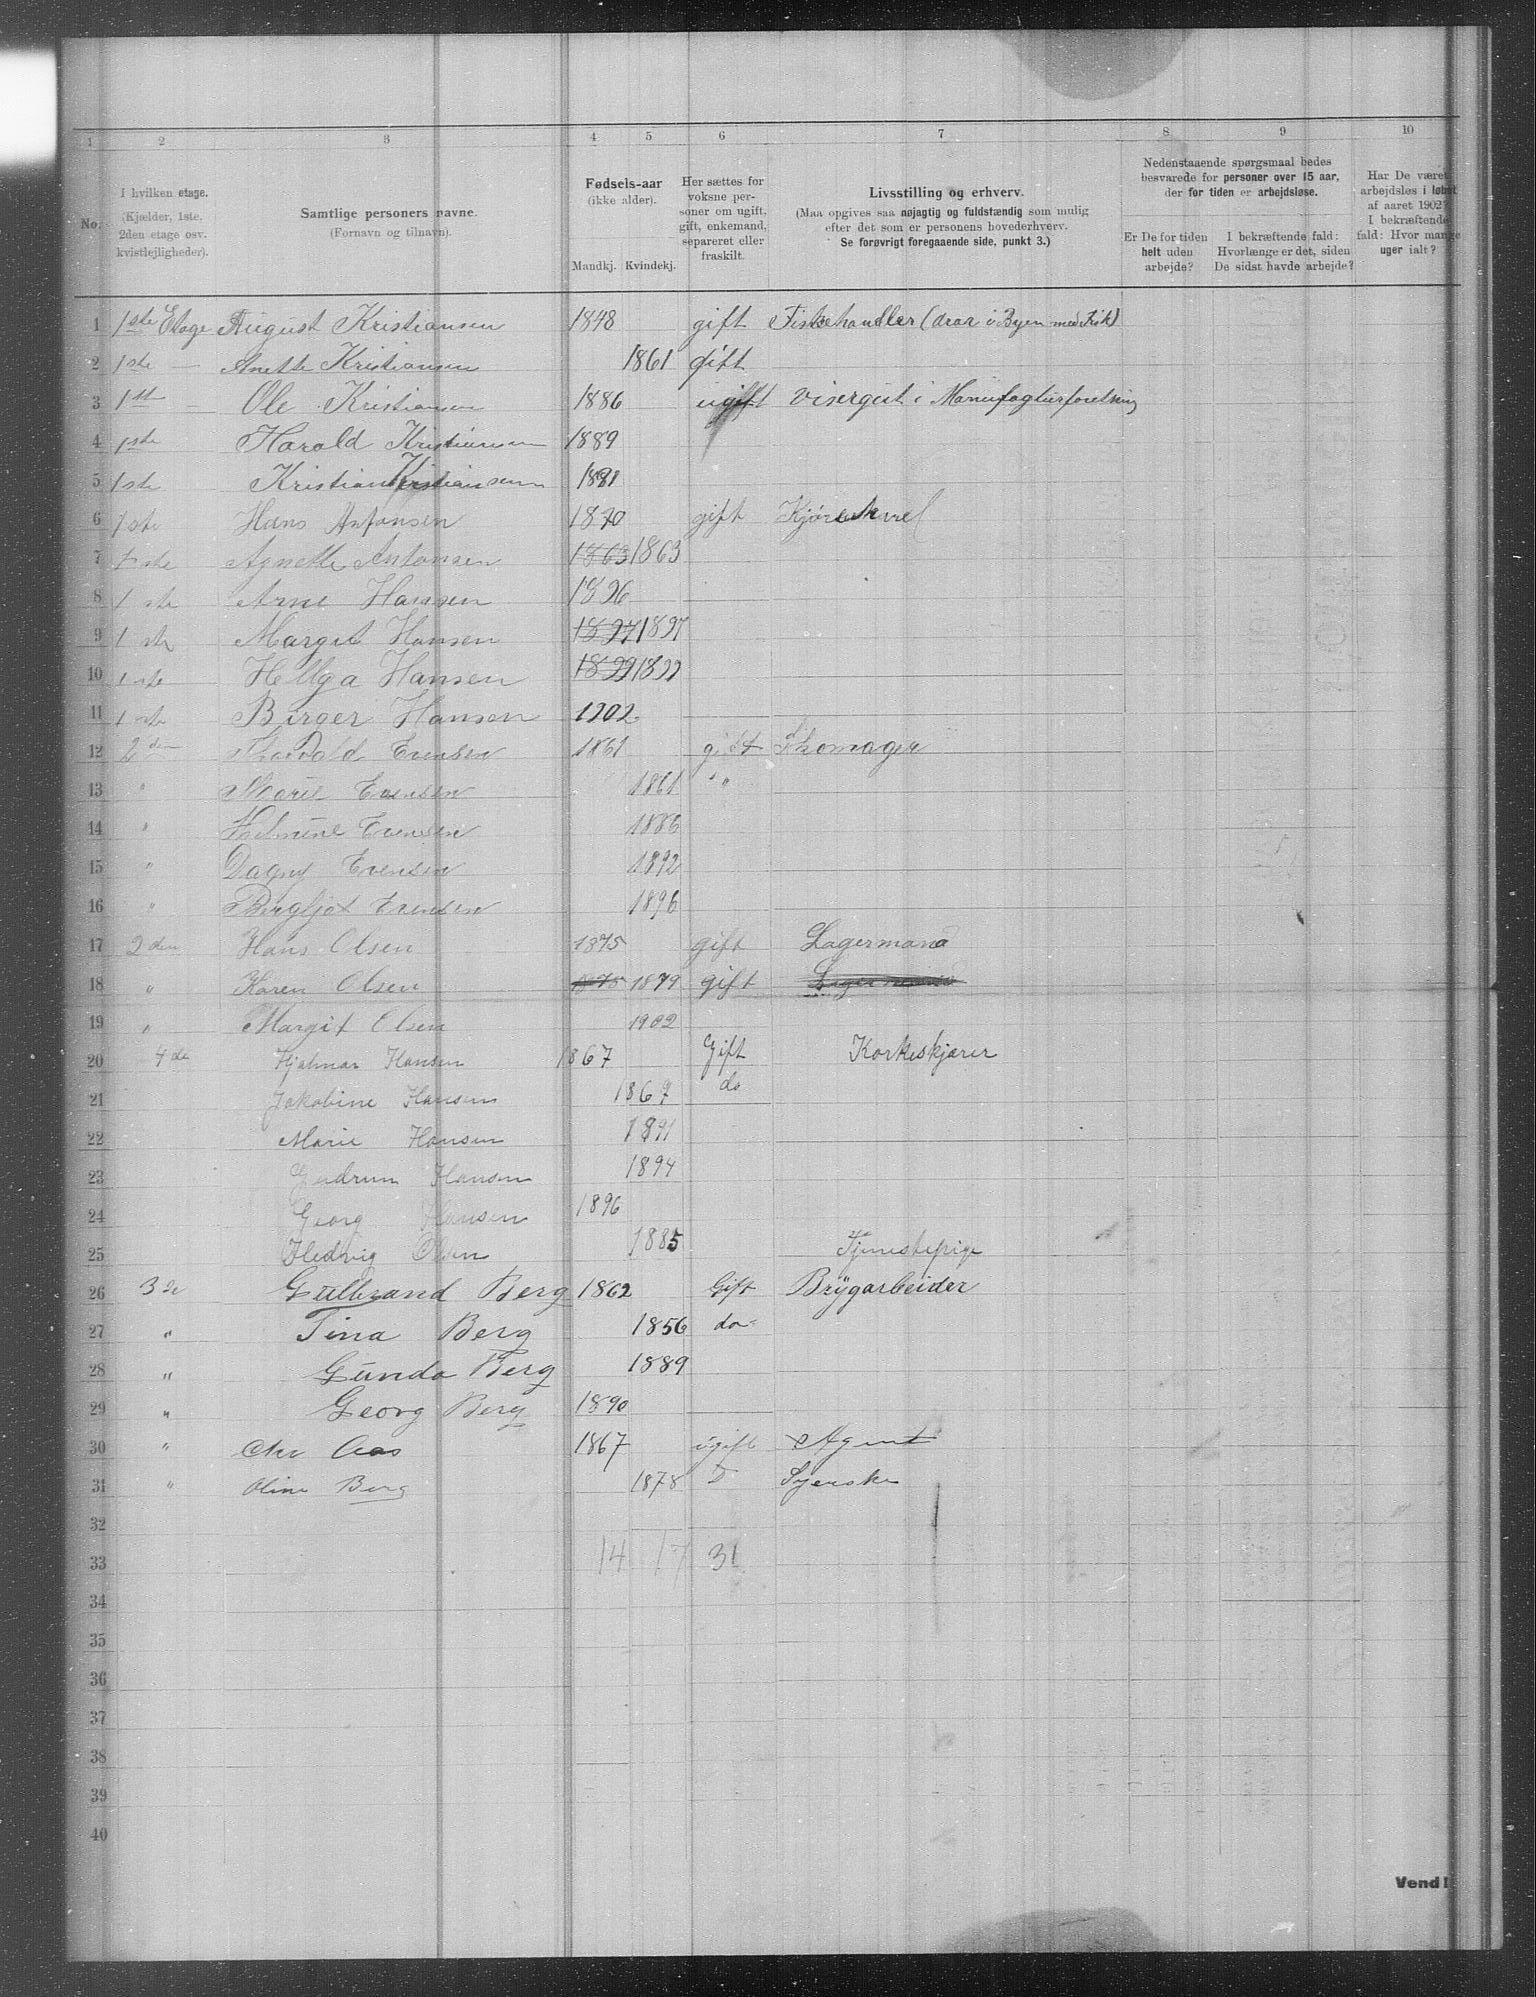 1 2 3 4 5 6 7 8 9 10
No. I hvilken etage. (Kjælder, 1ste, 2den etage osv. kvistlejligheder).
Samtlige personers navne. (Fornavn og tilnavn).
Fødsels-aar (ikke alder). Mandkj. Kvindekj.
Her sættes for voksne personer om ugift, gift, enkemand, separeret eller fraskilt.
Livsstilling og erhverv. (Maa opgives saa nøjagtig og fuldstændig som mulig efter det som er personens hovederhverv. Se forøvrigt foregaaende side, punkt 3.)
Nedenstaaende spørgsmaal bedes besvarede for personer over 15 aar, der for tiden er arbejdsløse.
Er De for tiden helt uden arbejde?
I bekræftende fald: Hvorlænge er det, siden De sidst havde arbejde?
Har De været arbejdsløs i løbet af aaret 1902? I bekræftende fald: Hvor mange uger ialt?
1 1ste Etage August Kristiansen 1848 gift Fiskehandler (drar i Byen med Fisk)
2 1ste — Anette Kristiansen 1861 gift
3 1ste Ole Kristiansen 1886 ugift visergut i Manufagturforetning
4 1ste Harald Kristiansen 1889
5 1ste Kristian Kristiansen 1891
6 1ste Hans Antonsen 1870 gift Kjørekarel
7 1ste Agnette Antonsen 1863 1863
8 1 ste Arne Hansen 1896
9 1 ste Margit Hansen 1897 1897
10 1 ste Hellga Hansen 1899 1899
11 1 ste Birger Hansen 1902
12 2den Thorvald Evensen 1861 gift Skomager
13 " Marie Evensen 1861 "
14 " Helmine Evensen 1886
15 " Dagny Evensen 1892
16 " Bergljot Evensen 1896
17 2den Hans Olsen 1875 gift Lagermand
18 " Karen Olsen 1875 1879 gift Lagermand
19 " Margit Olsen 1902
20 4de Hjalmar Hansen 1867 Gift Korkeskjærer
21 Jakobine Hansen 1867 do
22 Marie Hansen 1891
23 Gudrun Hansen 1894
24 Georg Hansen 1896
25 Hedvig Olsen 1885 Tjenestepige
26 3de Gulbrand Berg 1862 Gift Brygarbeider
27 " Tina Berg 1856 do-
28 " Gunda Berg 1889
29 " Georg Berg 1890
30 " Chr Aas 1867 ugift Agent
31 " Oline Berg 1878 D Syerske
32
33 14 17 31
34
35
36
37
38
39
40
Vend!